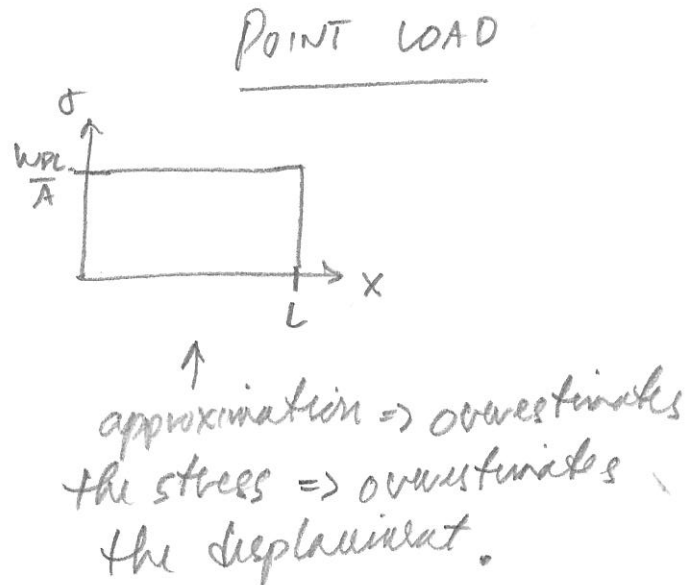 POINT LOAD
σ
WPL
A
X
L
approximation => overestimates
the stress => overestimates
the displacement.